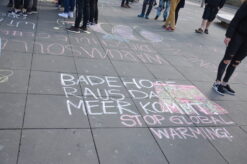 WARUM SOLL
BADEHOSE
RAUS DAS
MEER KOMMT
STOP GLOBAL
WARMING!